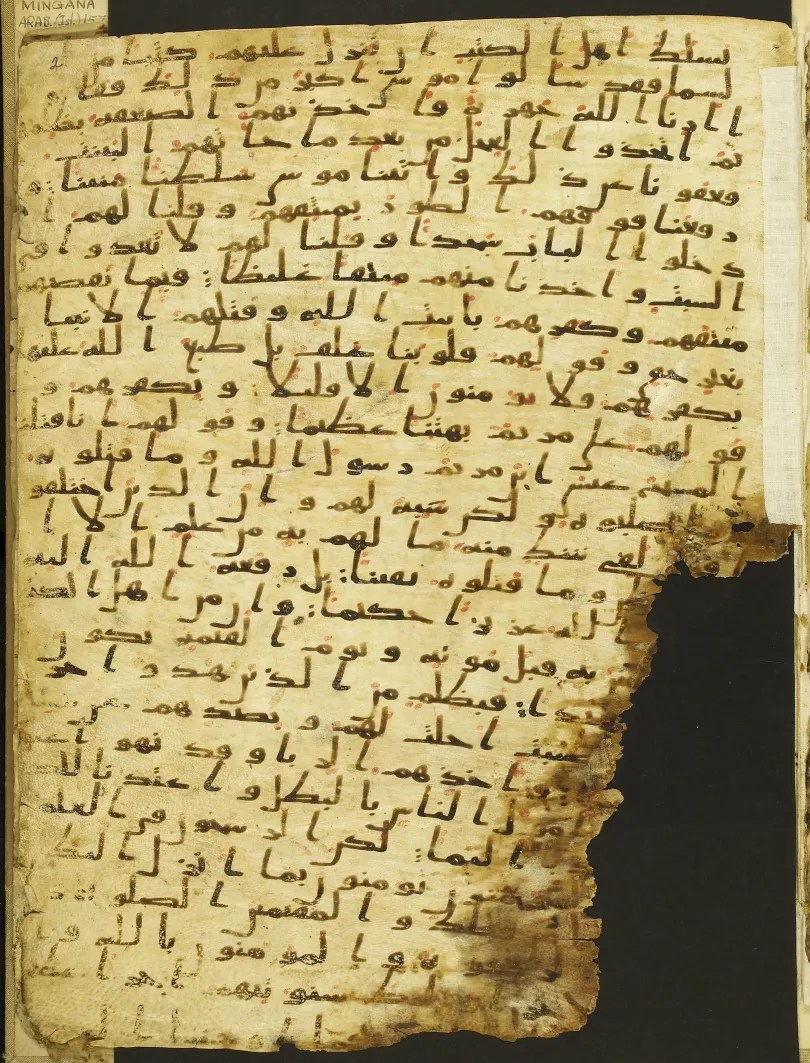 MINGANA
ARAB. (Isl.) 157
2
يسلك اهل الكتب ان تنزل عليهم كتبا من
السما فقد سالوا موسى اكبر من ذلك فقا لو
ا ارنا الله جهرة فاخذتهم الصعقة بظلمهم
ثم اتخذوا العجل من بعد ما جاتهم البينت
فعفونا عن ذلك واتينا موسى سلطنا مبينا و
رفعنا فوقهم الطور بميثقهم وقلنا لهم ا
دخلوا الباب سجدا وقلنا لهم لا تعدوا في
السبت واخذنا منهم ميثقا غليظا فبما نقضهم
ميثقهم وكفرهم بايت الله وقتلهم الانبيا
بغير حق وقولهم قلوبنا غلف بل طبع الله عليها
بكفرهم فلا يومنون الا قليلا وبكفرهم و
قولهم على مريم بهتنا عظيما وقولهم انا قتلنا
المسيح عيسى ابن مريم رسول الله وما قتلوه
صلبوه ولكن شبه لهم وان الذين اختلفو
لفي شك منه ما لهم به من علم الا ا
وما قتلوه يقينا بل رفعه الله اليه
الله عزيزا حكيما وان من اهل الكتب
به قبل موته ويوم القيمة يكون
شهيدا فبظلم من الذين هدوا حر
طيبت احلت لهم وبصدهم عن
واخذهم الربا وقد نهوا عنه
الناس بالبطل واعتدنا للك
اليما لكن الرسخون في العلم
يومنون بما انزل اليك
والمقيمين الصلوة
والمومنون بالله
سنوتيهم اجرا